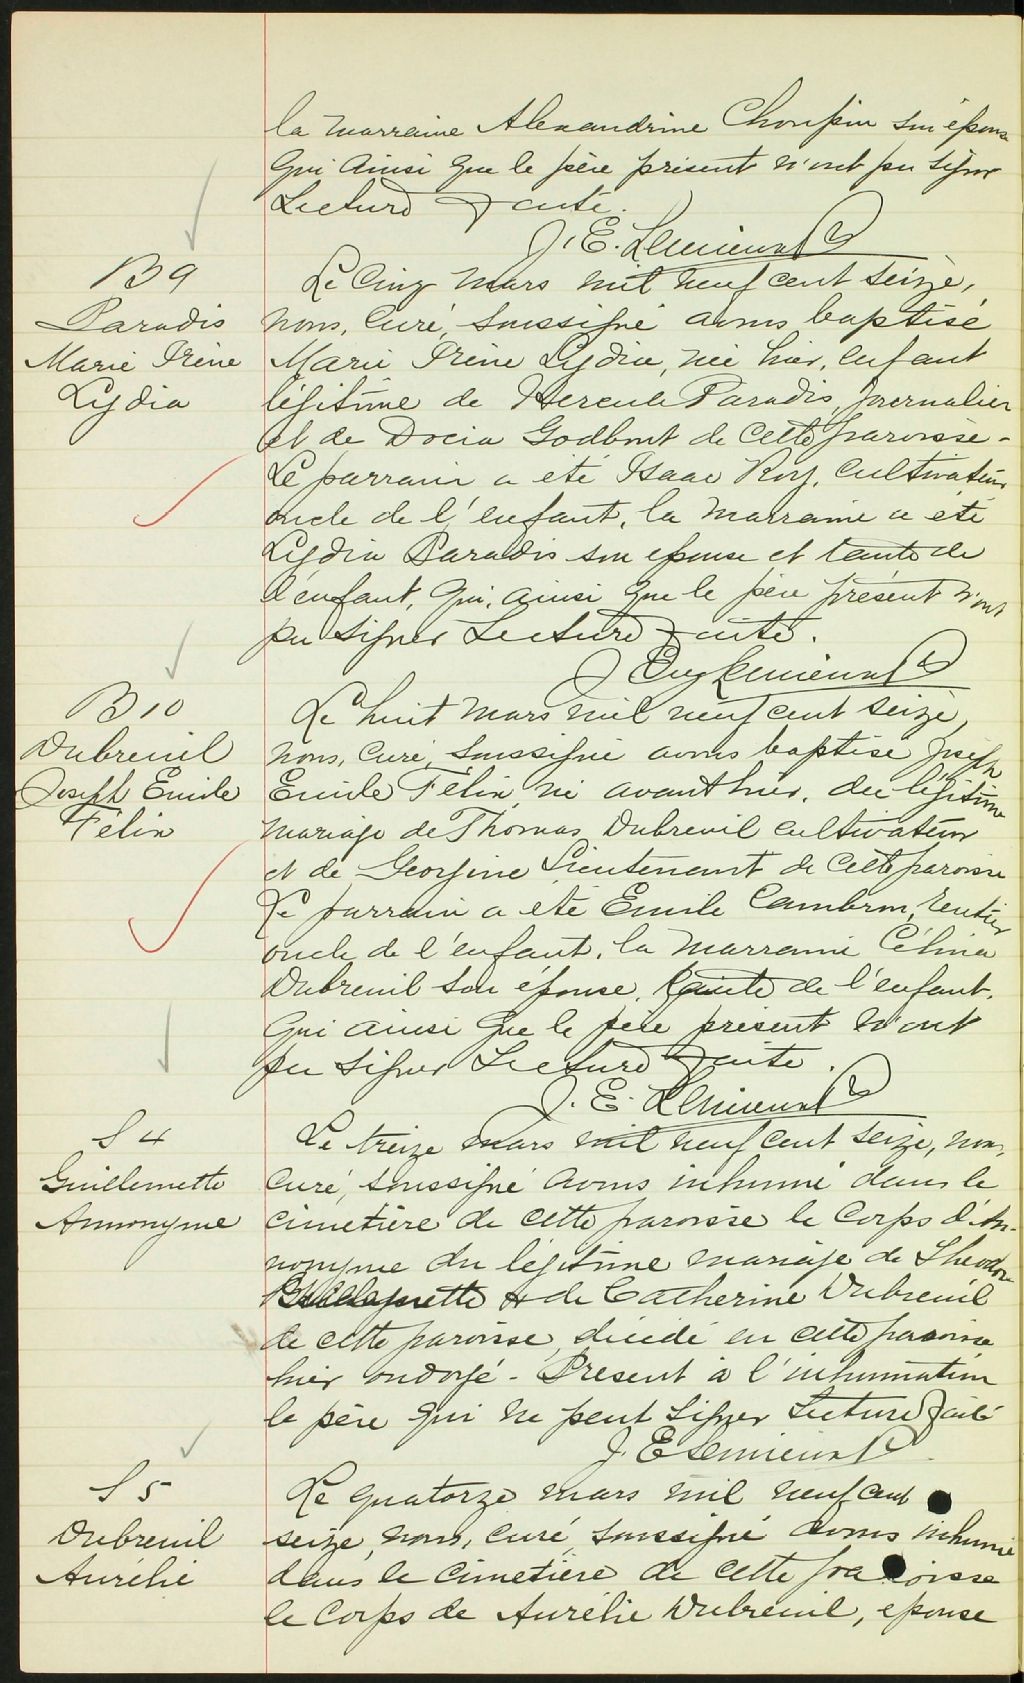 la marraine Alexandrine Choupin son épouse
qui ainsi que le père présent n'ont pu signer
Lecture faite.
J. E. Lemieux Ptre
B 9
Paradis
Marie Irène
Lydia
Le cinq mars mil neuf cent seize,
nous, curé, soussigné avons baptisé
Marie Irène Lydia, née hier, enfant
légitime de Hercule Paradis, journalier
et de Docia Godbout de cette paroisse -
Le parrain a été Isaac Roy, cultivateur
oncle de l'enfant, la marraine a été
Lydia Paradis son epouse et tante de
l'enfant, qui, ainsi que le père présent n'ont
pu signer Lecture faite.
J Eug Lemieux Ptre
B 10
Dubreuil
Joseph Emile
Félix
Le huit mars mil neuf cent seize,
nous, curé, soussigné avons baptisé Joseph
Emile Félix né avant hier, du légitime
mariage de Thomas Dubreuil cultivateur
et de Georgine Lieutenant de cette paroisse
Le parrain a été Emile Cambron, rentier
oncle de l'enfant, la marraine Célina
Dubreuil son épouse, tante de l'enfant.
qui ainsi que le père présent n'ont
pu signer Lecture faite.
J. E. Lemieux Ptre
S 4
Guillemette
Annonyme
Le treize mars mil neuf cent seize, nous,
curé, soussigné avons inhumé dans le
cimetière de cette paroisse le corps d'An-
nonyme du légitime mariage de Theodore
Guillemette & de Catherine Dubreuil
de cette paroisse, décédé en cette paroisse
hier ondoyé - Présent à l'inhumation
le père qui ne peut signer Lecture faite
J. E Lemieux Ptre
S 5
Dubreuil
Aurélie
Le quatorze mars mil neuf cent
seize, nous, curé, soussigné avons inhumé
dans le cimetière de cette paroisse
le corps de Aurélie Dubreuil, epouse